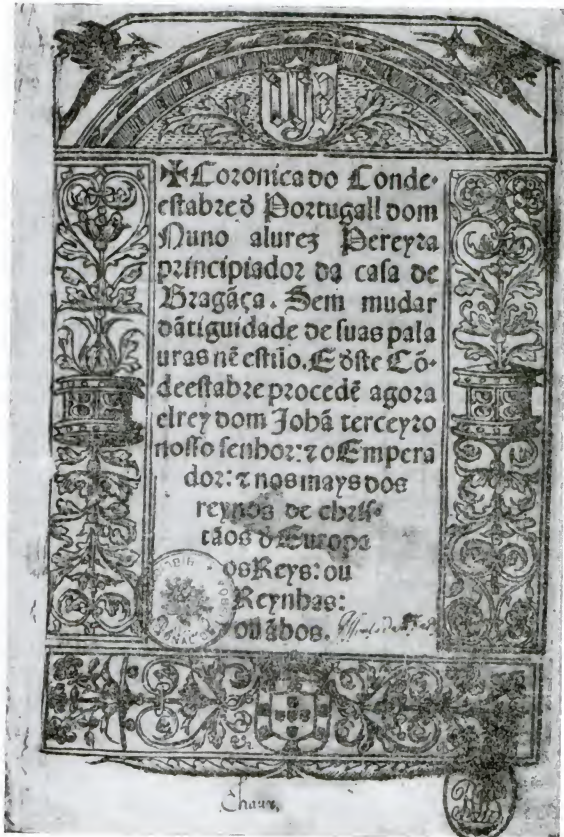 ✠Coronica do Conde-
estabre đ Portugall dom
Nuno alurez Pereyra
principiador da casa de
Bragãça. Sem mudar
dãtiguidade de suas pala
uras nẽ estilo. E đste Cõ-
deestabre procedẽ agora
elrey dom Johã terceyro
nosso senhor: ⁊ o Empera
dor: ⁊ nos mays dos
reynos de chris-
tãos đ Europa
os Reys: ou
Reynhas:
ou ãbos.
Chaux,